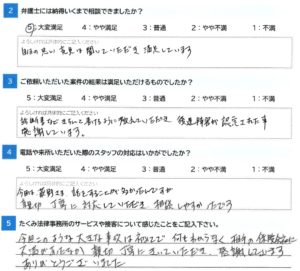 2 弁護士には納得いくまで相談できましたか？
5：大変満足 4：やや満足 3：普通 2：やや不満 1：不満
よろしければ具体的にご記入ください
私の思い 意見は聞いていただき 満足しています
3 ご依頼いただいた案件の結果は満足いただけるものでしたか？
5：大変満足 4：やや満足 3：普通 2：やや不満 1：不満
よろしければ具体的にご記入ください
ていただき 後遺障害が認定され
感謝しています。
4 電話や来所いただいた際のスタッフの対応はいかがでしたか？
5：大変満足 4：やや満足 3：普通 2：やや不満 1：不満
よろしければ具体的にご記入ください
今回は 話をすることが なかったんですが
親切 丁寧に対応していただき 相談しやすかったです
5 たくみ法律事務所のサービスや接客について感じたことをご記入下さい。
今回このような大きな事故は初めてで 何もわからなく 相手の保険会社に
親切 丁寧にしていただき、感謝しています
ありがとうございました